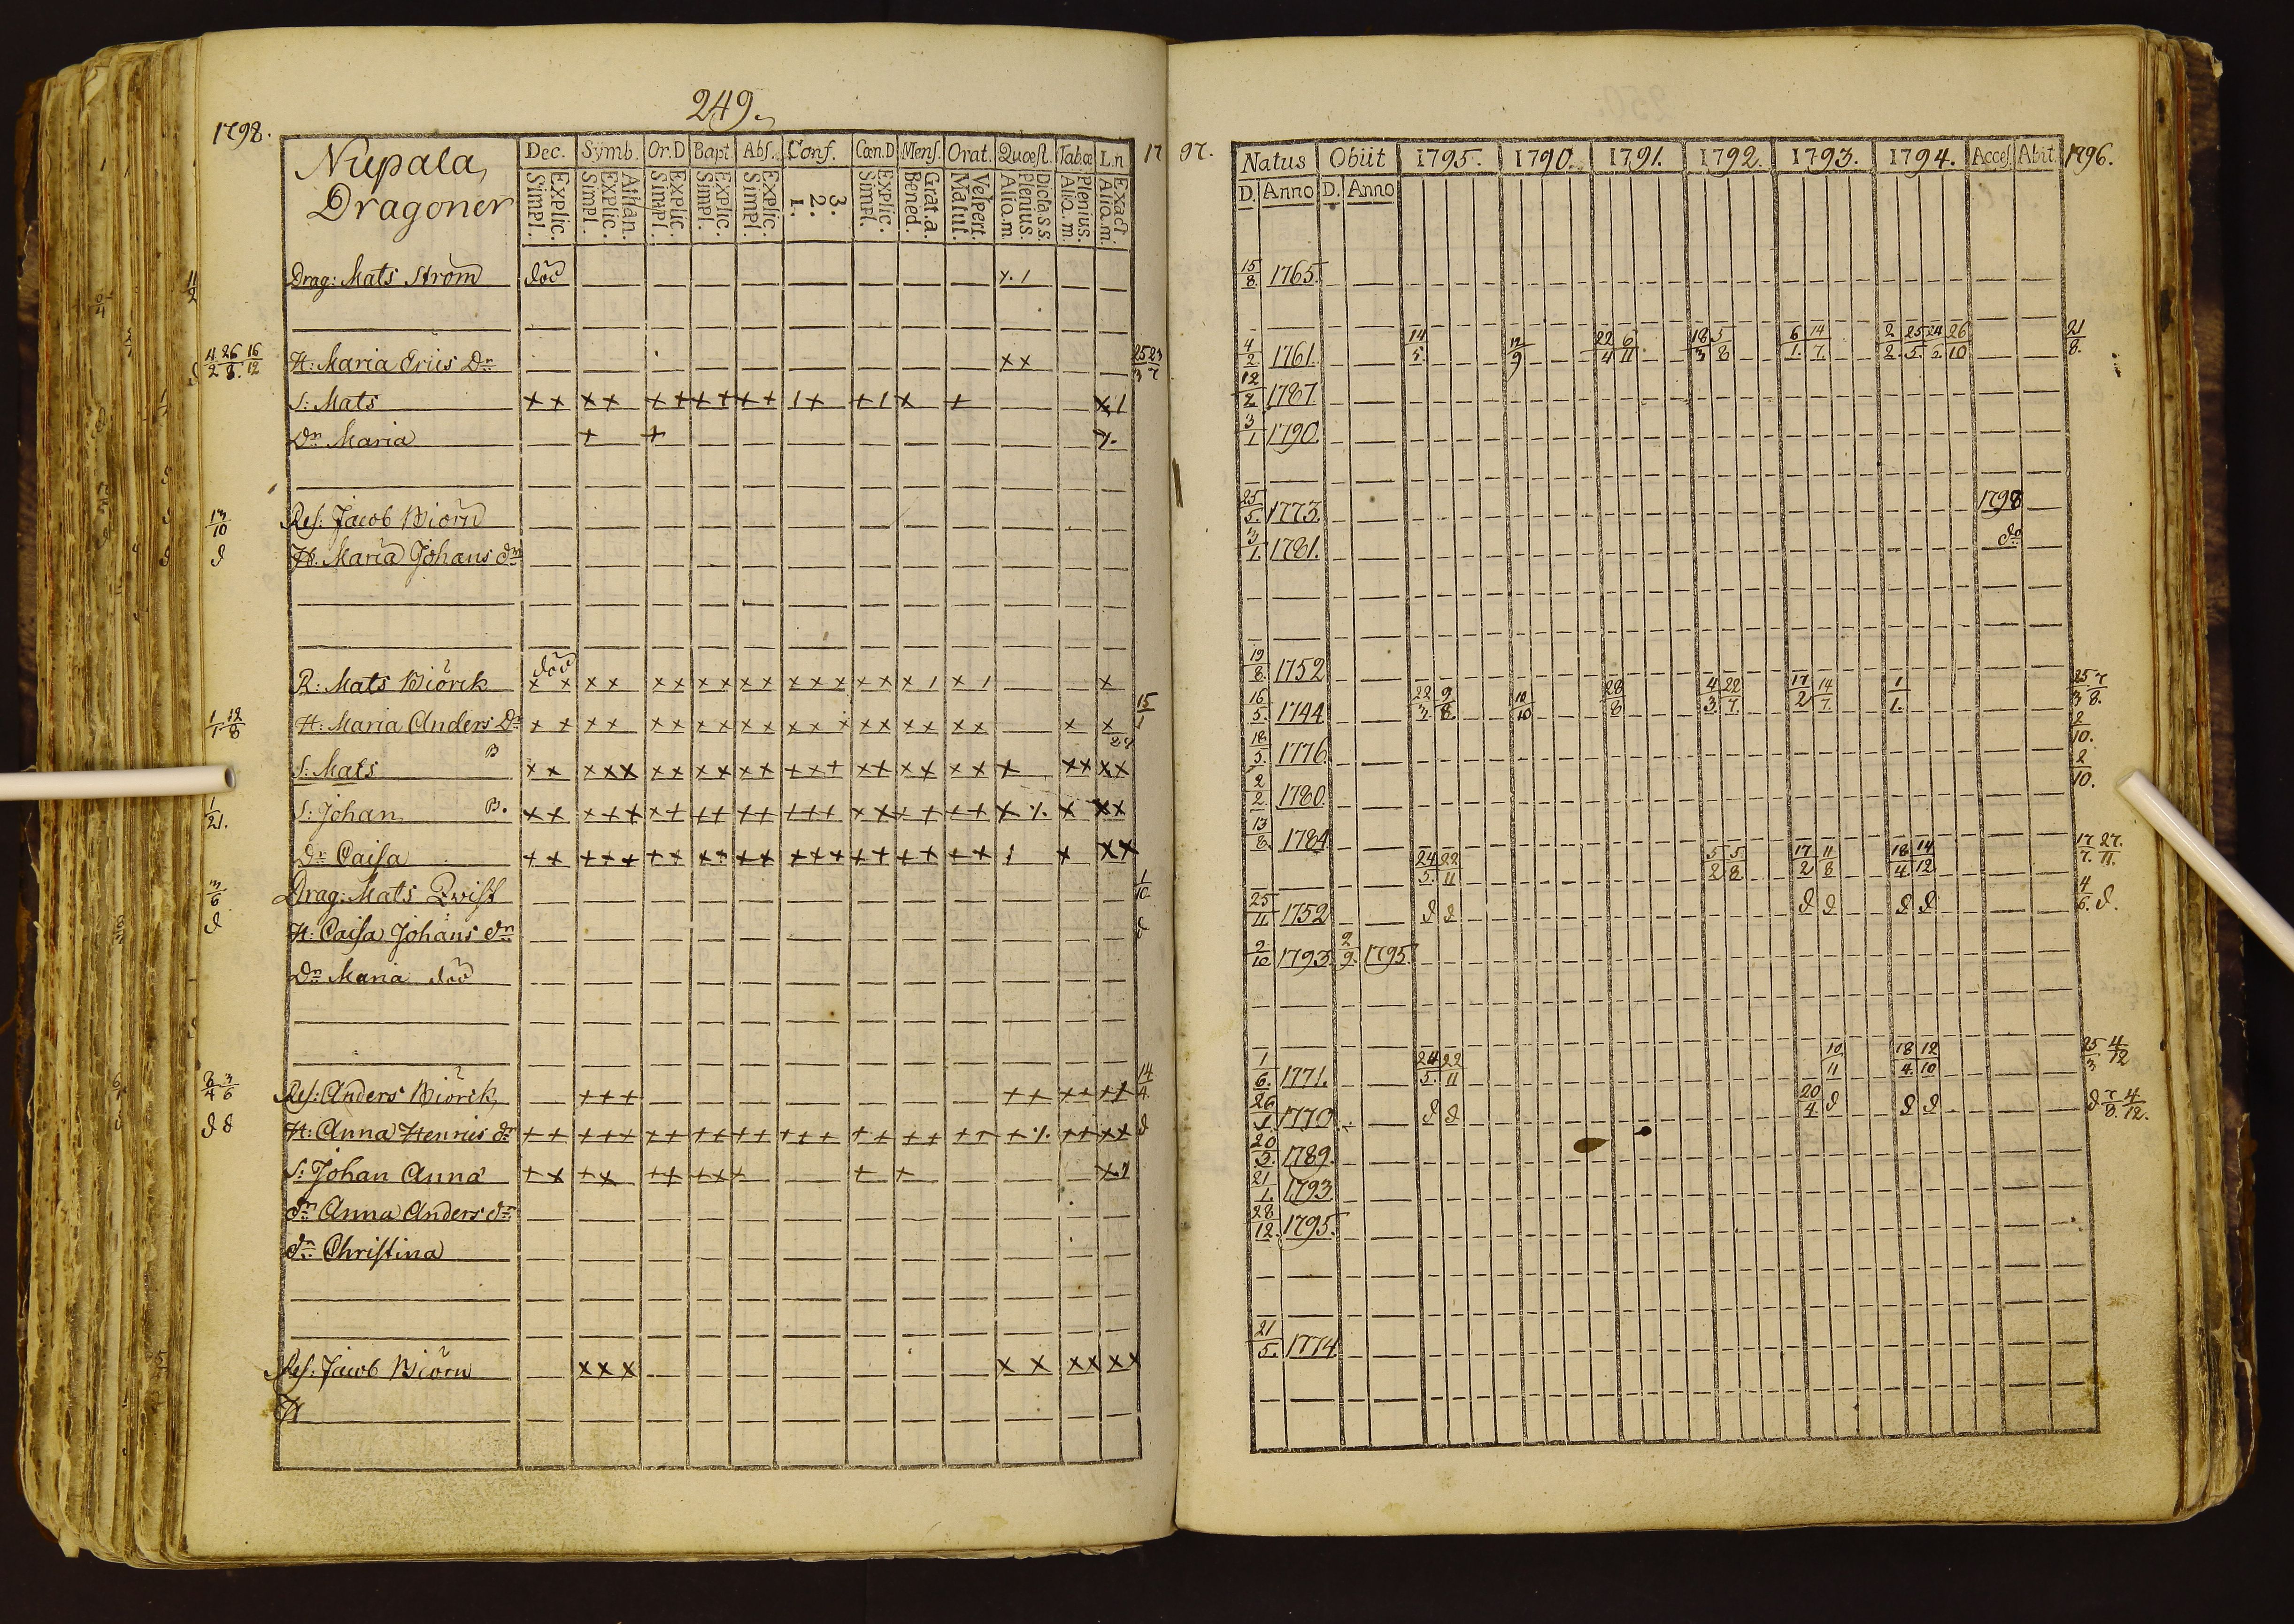 249.
1798.
Nupala,
Dragoner
Dec. Symb. Or.D Bapt. Abs. Conf. Cœn.D Mens. Orat. Quæst. Tab.œ L.n 17
Explic. Simpl. Athan. Explic. Simpl. Explic. Simpl. Explic. Simpl. Explic. Simpl. 3. 2. 1. Explic. Simpl. Grat.a. Bened. Vespert. Matut. Dicta.s.s. Plenius. Alio.m Plenius. Alio.m. Exact. Alio.m.
Drag: Mats Ström död
4/2 26/8. 16/12 H: Maria Erics Dr x x 25/3 23/7
S: Mats
Dr Maria
13/10 Res: Jacob Biörn
d H. Maria Johans dr
R: Mats Biörck död
1/1 12/8 H: Maria Anders Dr 15/1
S: Mats B
1/21. S: Johan B.
Dr Caisa
3/6 Drag: Mats Qvist 1/10
d H: Caisa Johans dr d
Dr Maria död
8/4 3/6 Res: Anders Biörck, 14/4
d d H: Anna Henrics dr d
S: Johan Anna
dr Anna Anders dr
dr Christina
Res: Jacob Biörn x x x x x x x x x
H
97. Natus Obiit 1795. 1790. 1791. 1792. 1793. 1794. Acces. Abiit. 1796.
D. Anno D. Anno
15/8. 1765.
4/2 1761. 14/5. 12/9 22/4 6/11 18/3 5/8 6/1. 14/7. 2/2. 25/5. 24/5. 26/10 21/8.
12/2 1787
3/1 1790.
25/5. 1773. 1798
3/1. 1781. do
19/8. 1752
16/5. 1744 22/3. 9/8. 10/10 28/8 4/3 22/7. 17/2 14/7. 1/1. 25/3. 7/8.
18/5. 1776 2/10.
2/2. 1780. 2/10.
13/8. 1784
24/5. 22/11 5/2 5/8 17/2 11/8 18/4 14/12 17/7. 27./11.
25/11. 1752 d d d d d d 4/6. d.
2/10 1793 2/9. 1795.
1/6. 1771. 24/5. 22/11 10/11 18/4. 12/10 25/3 4/12
26/1 1770. d d 20/4. d d d d 7/8. 4/12.
20/3. 1789.
21/1. 1793
28/12. 1795.
21/5. 1774